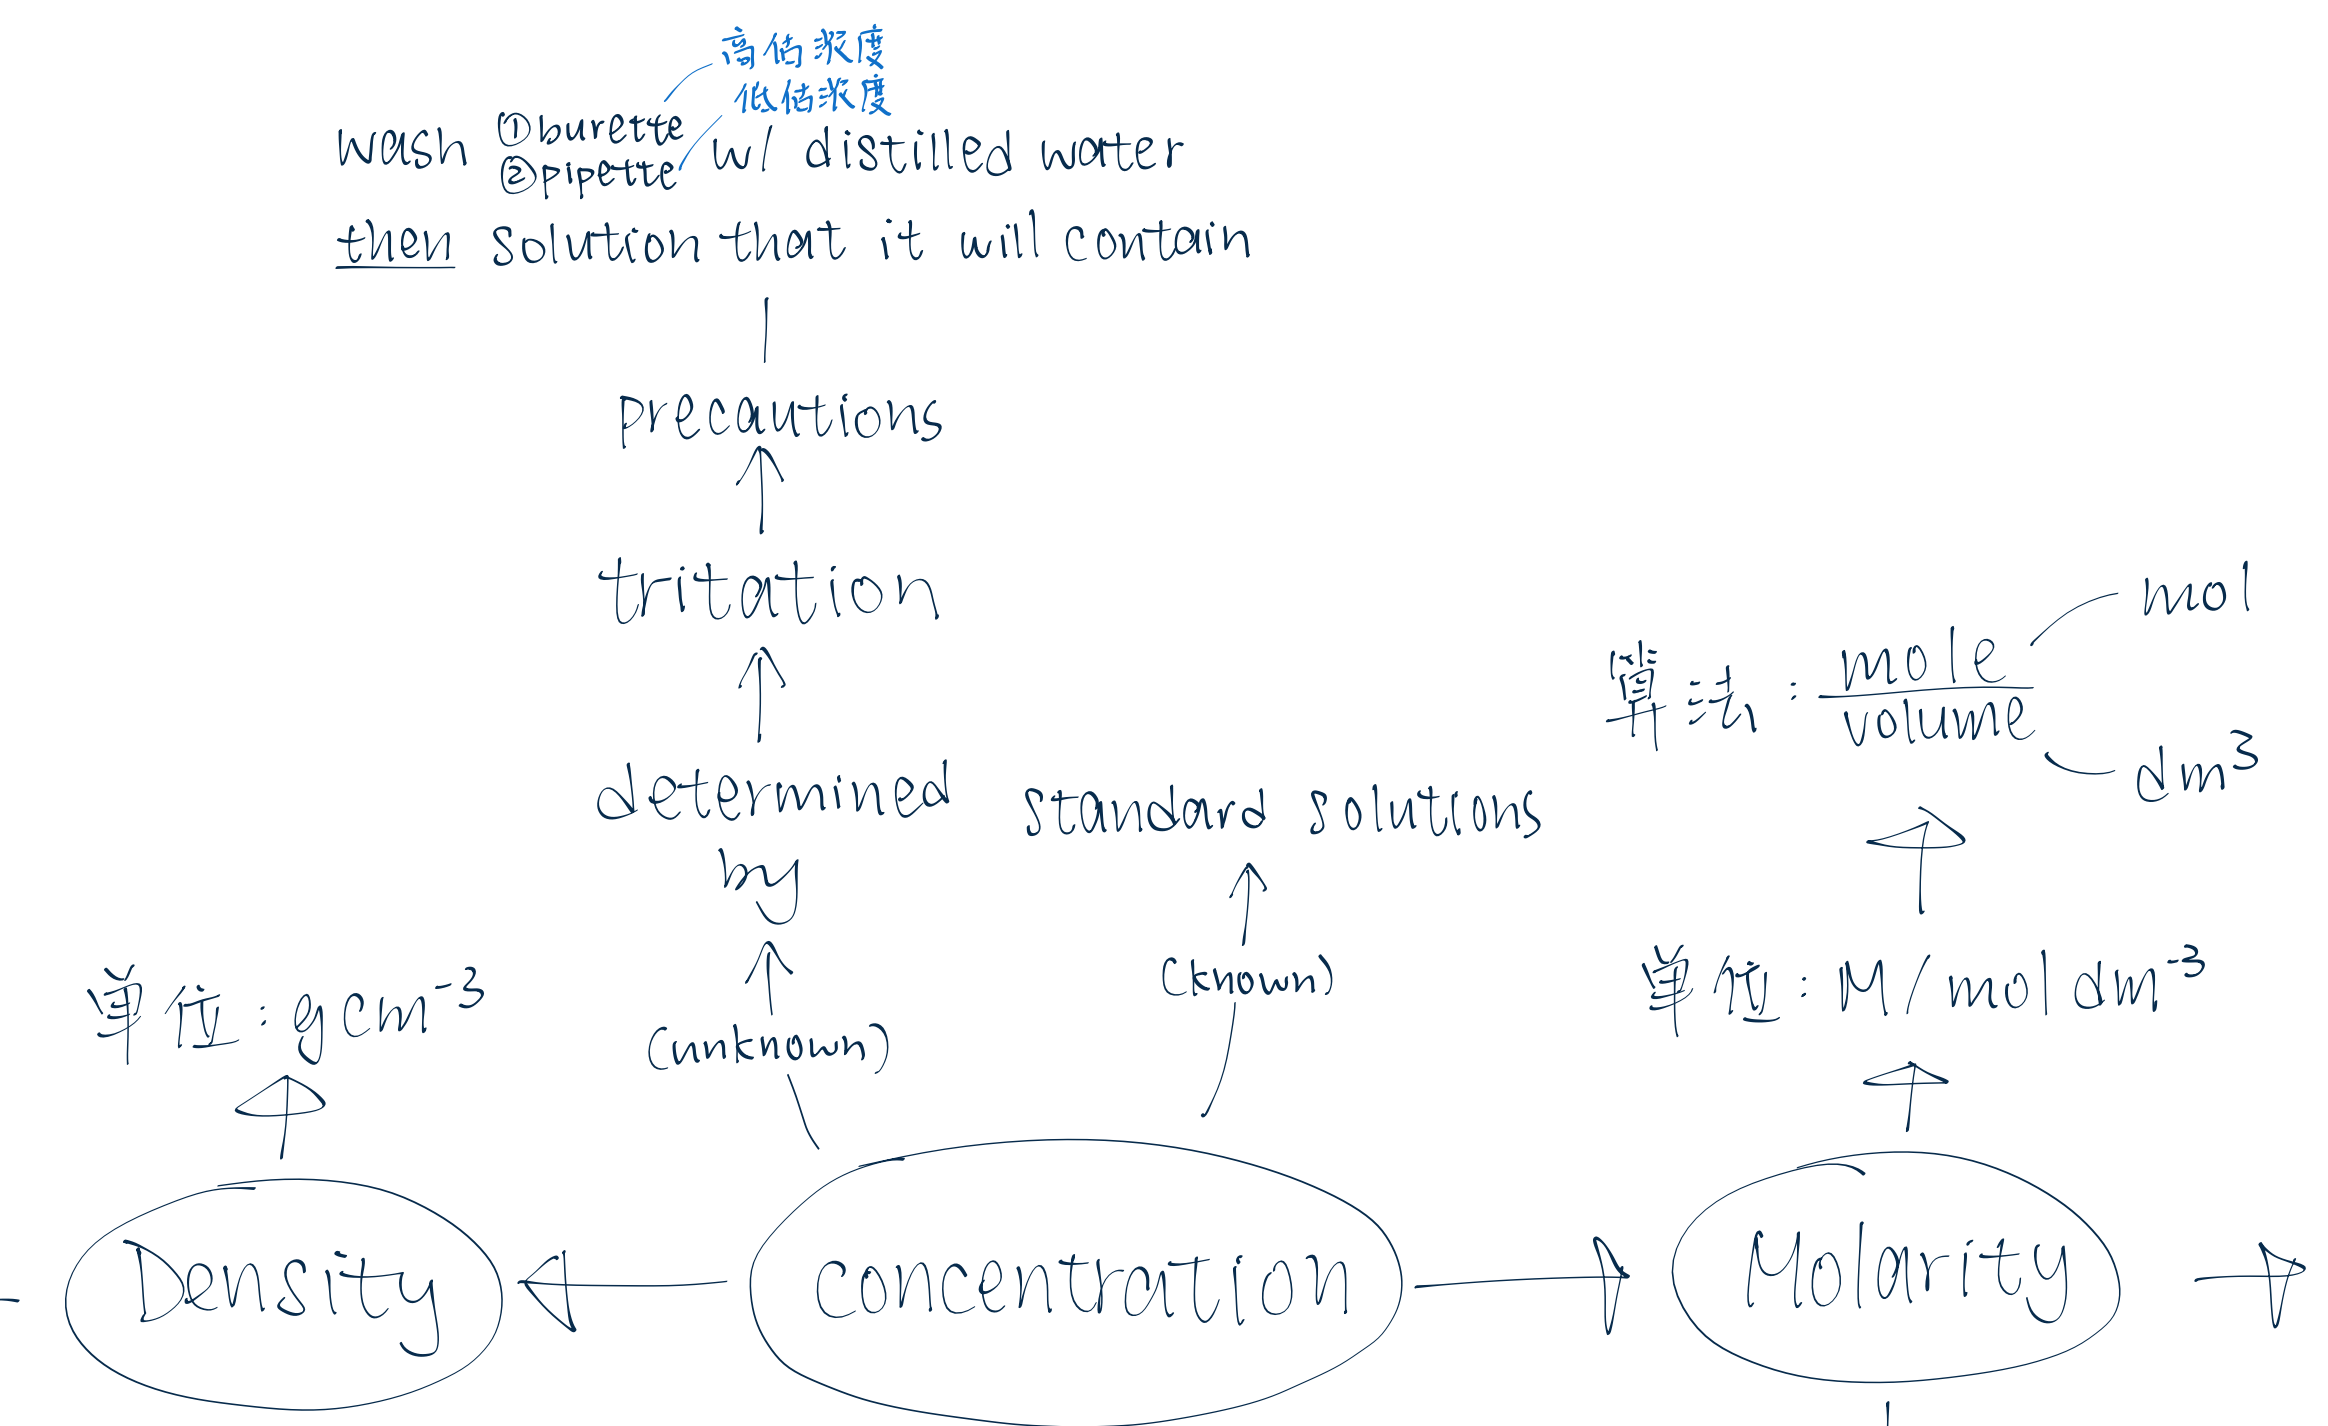 高估浓度
低估浓度
wash ①burette ②pipette w/ distilled water
then solution that it will contain
precautions
tritation
determined
by
(unknown)
standard solutions
(known)
算法: mole/volume
mol
dm³
单位: g cm⁻³
单位: M/mol dm⁻³
Density
concentration
Molarity